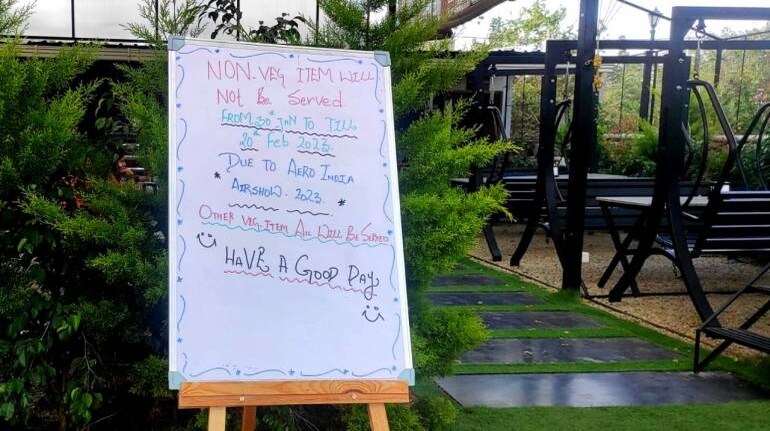 NON. VEG ITEM WILL
Not Be Served
FROM 30th JAN TO TILL
20th Feb 2023.
DUE TO AERO INDIA
* AIRSHOW. 2023. *
OTHER VEG.ITEM ALL WILL BE SERVED
HAVE A GOOD DAY,